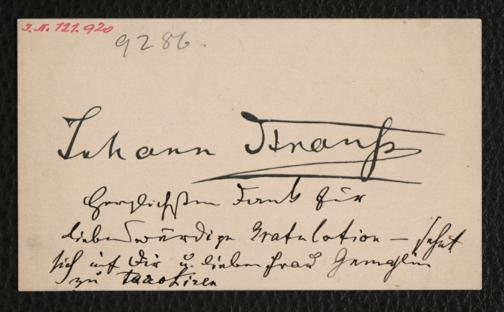 I.N. 121.920
9286.
Johann Strauß
Herzlichsten Dank für
liebenswürdige Gratulation – sehnt
sich mit Dir u lieben Frau Gemahlin
zu tarokiren